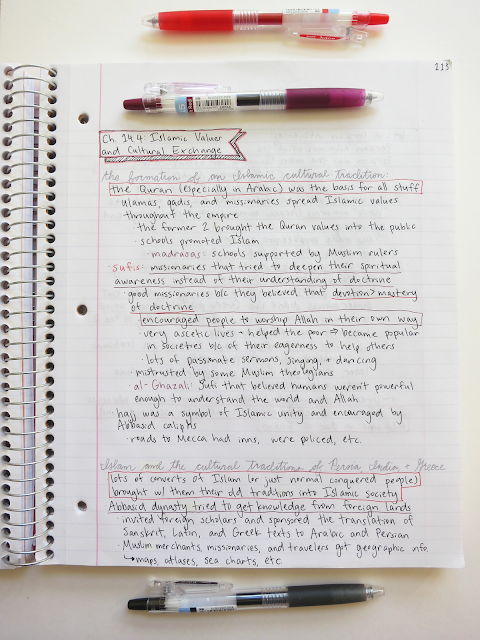 113
Ch. 14.4: Islamic Values
and Cultural Exchange
the formation of an Islamic cultural tradition:
the Quran (especially in Arabic) was the basis for all stuff
· ulamas, qadis, and missionaries spread Islamic values
throughout the empire
· the former 2 brought the Quran values into the public
· schools promoted Islam
· madrasas: schools supported by Muslim rulers
· sufis: missionaries that tried to deepen their spiritual
awareness instead of their understanding of doctrine
good missionaries b/c they believed that devotion > mastery
of doctrine
encouraged people to worship Allah in their own way
very ascetic lives + helped the poor → became popular
in societies b/c of their eagerness to help others
· lots of passionate sermons, singing, + dancing
· mistrusted by some Muslim theologians
· al-Ghazali: Sufi that believed humans weren't powerful
enough to understand the world and Allah
hajj was a symbol of Islamic unity and encouraged by
Abbasid caliphs
· roads to Mecca had inns, were policed, etc.
Islam and the cultural traditions of Persia, India, + Greece
lots of converts of Islam (or just normal conquered people)
brought w/ them their old traditions into Islamic society
Abbasid dynasty tried to get knowledge from foreign lands
· invited foreign scholars and sponsored the translation of
Sanskrit, Latin, and Greek texts to Arabic and Persian
· Muslim merchants, missionaries, and travelers got geographic info
↳ maps, atlases, sea charts, etc.